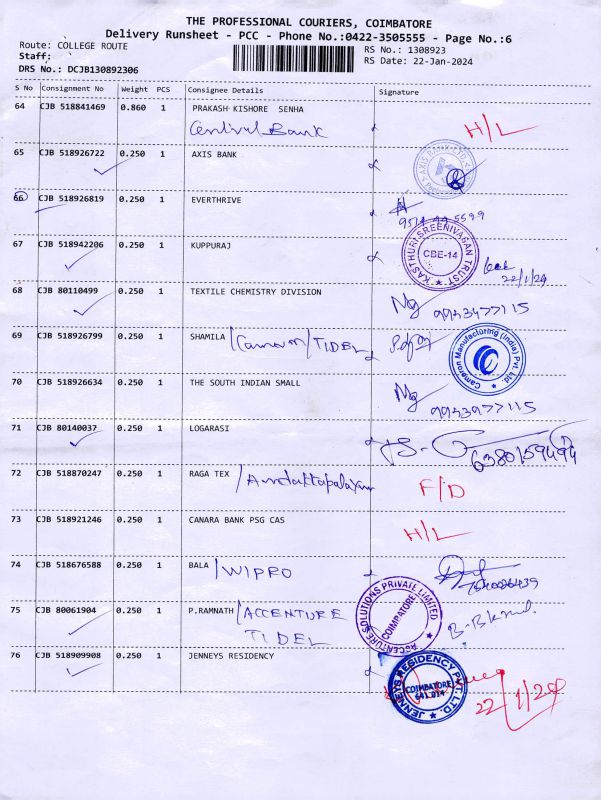 THE PROFESSIONAL COURIERS, COIMBATORE
Delivery Runsheet - PCC - Phone No.:0422-3505555 - Page No.:6
Route: COLLEGE ROUTE
RS No.: 1308923
Staff:
RS Date: 22-Jan-2024
DRS No.: DCJB130892306
S No Consignment No Weight PCS Consignee Details Signature
64 CJB 518841469 0.860 1 PRAKASH KISHORE SENHA
Central Bank H/L
65 CJB 518926722 0.250 1 AXIS BANK
66 CJB 518926819 0.250 1 EVERTHRIVE
67 CJB 518942206 0.250 1 KUPPURAJ
KASTHURI SREENIVASAN TRUST CBE-14
22/1/24
68 CJB 80110499 0.250 1 TEXTILE CHEMISTRY DIVISION
9943977115
69 CJB 518926799 0.250 1 SHAMILA /Cameron/TIDEL
Cameron Manufacturing (India) Pvt. Ltd.
70 CJB 518926634 0.250 1 THE SOUTH INDIAN SMALL
9943977115
71 CJB 80140037 0.250 1 LOGARASI
6380159494
72 CJB 518870247 0.250 1 RAGA TEX F/D
73 CJB 518921246 0.250 1 CANARA BANK PSG CAS H/L
74 CJB 518676588 0.250 1 BALA /WIPRO
75 CJB 80061904 0.250 1 P.RAMNATH /ACCENTURE
TIDEL
ACCENTURE SOLUTIONS PRIVATE LIMITED COIMBATORE
76 CJB 518909908 0.250 1 JENNEYS RESIDENCY
JENNEYS RESIDENCY PVT. LTD. COIMBATORE 641 014